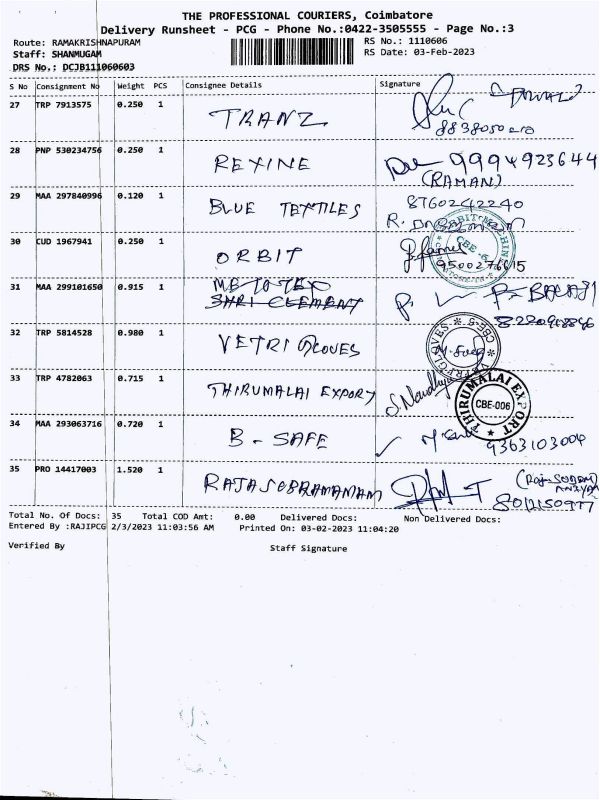 THE PROFESSIONAL COURIERS, Coimbatore
Delivery Runsheet - PCG - Phone No.:0422-3505555 - Page No.:3
Route: RAMAKRISHNAPURAM RS No.: 1110606
Staff: SHANMUGAM RS Date: 03-Feb-2023
DRS No.: DCJB111060603
S No Consignment No Weight PCS Consignee Details Signature
27 TRP 7913575 0.250 1 TRANZ
8838050210
28 PNP 530234756 0.250 1 REXINE 9994923644
(RAMAN)
29 MAA 297840996 0.120 1 BLUE TEXTILES 8760242240
30 CUD 1967941 0.250 1 ORBIT
9500276615
CBE-6
31 MAA 299101650 0.915 1
SHRI CLEMENT P. BALAJI
8220918896
32 TRP 5814528 0.980 1 VETRI GLOVES
CBE-6
33 TRP 4782063 0.715 1 THIRUMALAI EXPORT
THIRUMALAI EXPORT
CBE-006
34 MAA 293063716 0.720 1 B-SAFE 9363103004
35 PRO 14417003 1.520 1 RAJASUBRAMANIAM
Total No. Of Docs: 35 Total COD Amt: 0.00 Delivered Docs: Non Delivered Docs:
Entered By :RAJIPCG 2/3/2023 11:03:56 AM Printed On: 03-02-2023 11:04:20
Verified By Staff Signature